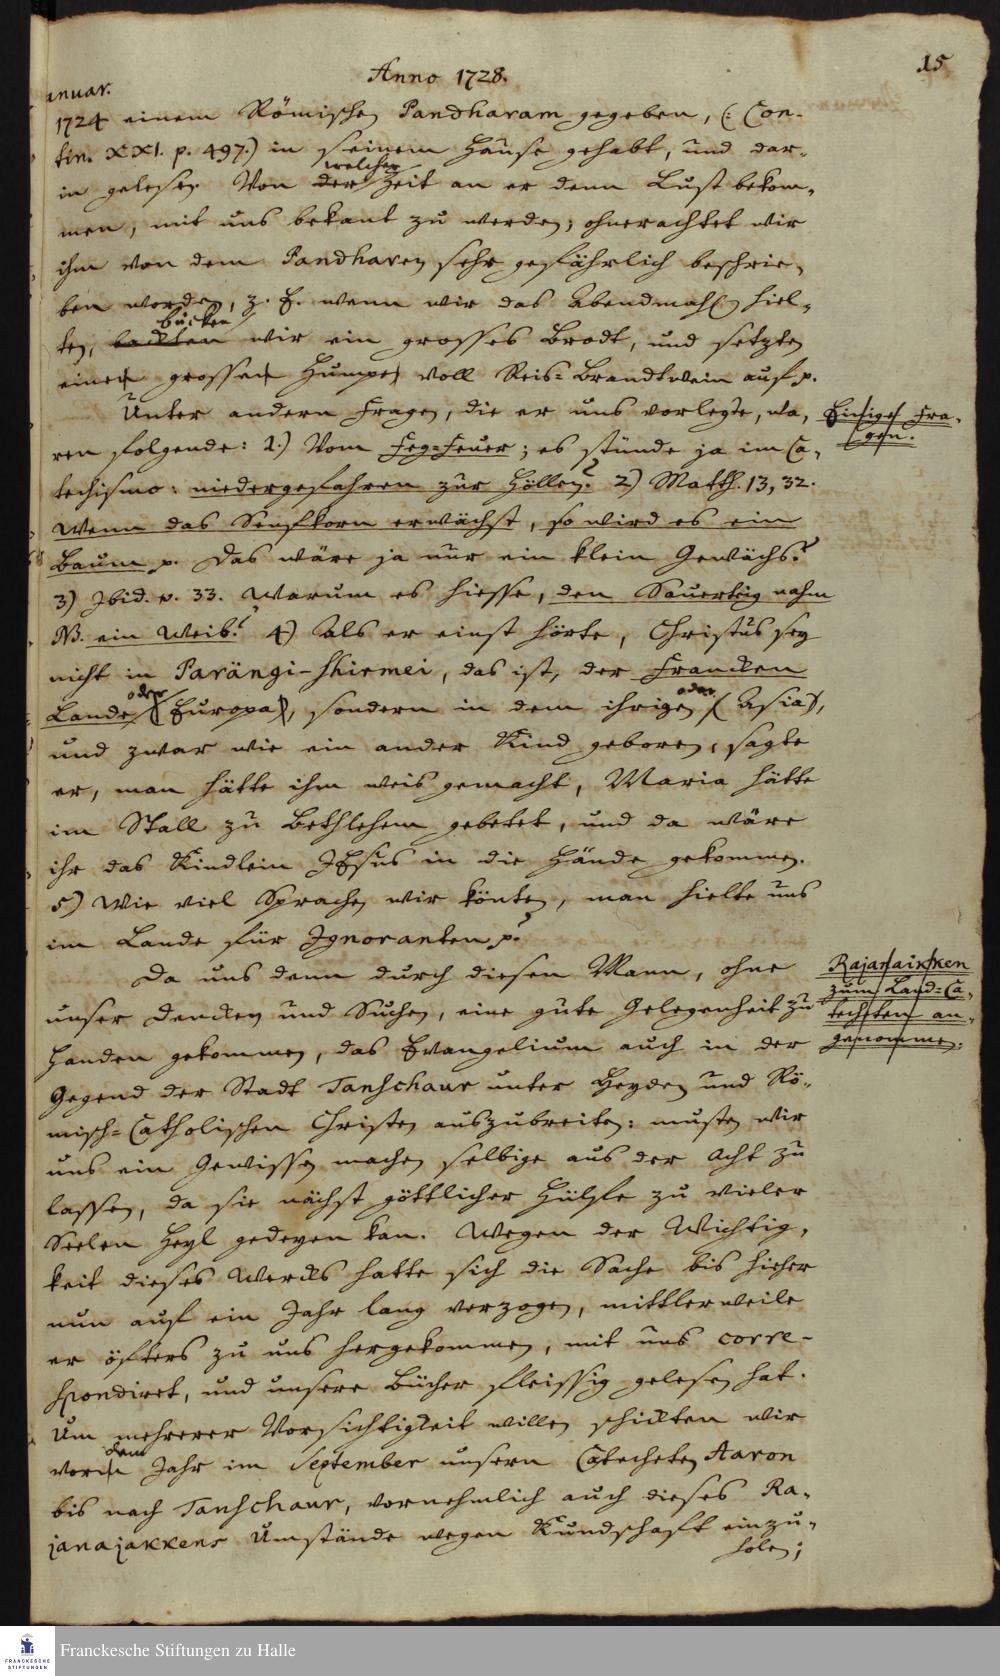 15
Anno 1728.
anuar.
1724 einem Römischen Pandharam gegeben, (: Con-
tin. XXI. p. 497.) in seinem Hause gehabt, und dar-
in gelesen. Von der welcher Zeit an er denn Lust bekom-
men, mit uns bekant zu werden; ohnerachtet wir
ihm von dem Pandharen sehr gefährlich beschrie-
ben worden, z. E. wenn wir das Abendmahl hiel-
ten, backten bücken wir ein grosses Brodt, und setzten
einen grossen Humpen voll Reis-Brandtwein auf p.
Unter andern Fragen, die er uns vorlegte, wa-
Einige Fra-
gen.
ren folgende: 1.) Vom Feg-Feuer; es stünde ja im Ca-
techismo: niedergefahren zur Höllen? 2) Matth. 13, 32.
Wenn das Senfkorn erwächst, so wird es ein
Baum p. Das wäre ja nur ein klein Gewächs?
3) Ibid. v. 33. Warum es hiesse, den Sauerteig nahm
NB. ein Weib? 4) Als er einst hörte, Christus sey
nicht in Parängi-Shirmei, das ist, der Francken
Lande oder (Europa), sondern in dem ihrigen oder (Asia),
und zwar wie ein ander Kind geboren, sagte
er, man hätte ihm weis gemacht, Maria hätte
im Stall zu Bethlehem gebetet, und da wäre
ihr das Kindlein JEsus in die Hände gekommen.
5) Wie viel Sprachen wir könten, man hielte uns
im Lande für Ignoranten p?
Da uns denn durch diesen Mann, ohne
Rajanaikken
zum Land-Ca-
techeten an-
genommen.
unser Dencken und Suchen, eine gute Gelegenheit zu
Handen gekommen, das Evangelium auch in der
Gegend der Stadt Tanschaur unter Heyden und Rö-
misch-Catholischen Christen auszubreiten: musten wir
uns ein Gewissen machen selbige aus der Acht zu
lassen, da sie nächst göttlicher Hülfe zu vieler
Seelen Heyl gedeyen kan. Wegen der Wichtig-
keit dieses Wercks hatte sich die Sache bis hieher
nun auf ein Jahr lang verzogen, mittlerweile
er öfters zu uns hergekommen, mit uns corre-
spondiret, und unsere Bücher fleissig gelesen hat.
Um mehrerer Vorsichtigkeit willen schickten wir
dem
Jahr im September unsern Catecheten Aaron
bis nach Tanschaur, vornehmlich auch dieses Ra-
janajakkens Umstände wegen Kundschaft einzu-
holen;
Franckesche Stiftungen zu Halle
FRANCKESCHE
STIFTUNGEN